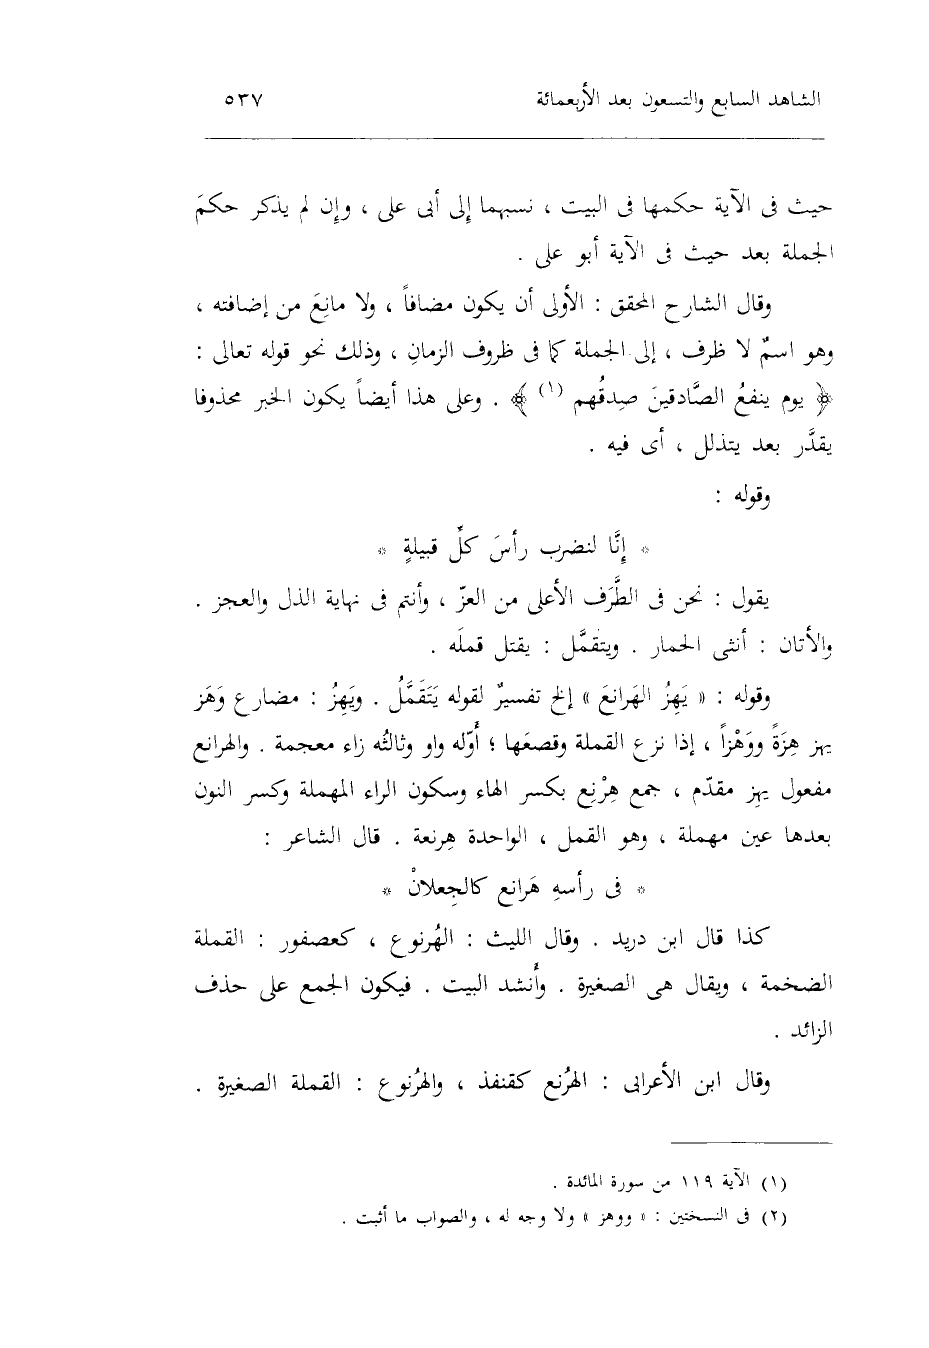 الشاهد السابع والتسعون بعد الأربعمائة ٥٣٧
حيث فى الآية حكمها فى البيت ، نسبهما إلى أبى على ، وإن لم يذكر حكمَ
الجملة بعد حيث فى الآية أبو على .
وقال الشارح المحقق : الأولى أن يكون مضافاً ، ولا مانِعَ من إضافته ،
وهو اسمٌ لا ظرف ، إلى الجملة كما فى ظروف الزمانِ ، وذلك نحو قوله تعالى :
﴿ يوم ينفعُ الصَّادقينَ صِدقُهم (١) ﴾ . وعلى هذا أيضاً يكون الخبر محذوفا
يقدَّر بعد يتذلل ، أى فيه .
وقوله :
* إنَّا لنضرب رأسَ كلِّ قبيلةٍ *
يقول : نحن فى الطَّرَف الأعلى من العزّ ، وأنتم فى نهاية الذل والعجز .
والأتان : أنثى الحمار . ويتقمَّل : يقتل قملَه .
وقوله : « يَهِزُ الهَرانعَ » إلخ تفسيرٌ لقوله يَتَقَمَّلُ . ويَهِزُ : مضارع وَهَز
يهز هِزَةً ووَهْزاً ، إذا نزع القملة وقصعَها ؛ أوّله واو وثالثُه زاء معجمة . والهرانع
مفعول يهِز مقدّم ، جمع هِرْنِع بكسر الهاء وسكون الراء المهملة وكسر النون
بعدها عين مهملة ، وهو القمل ، الواحدة هِرنعة . قال الشاعر :
* فى رأسهِ هَرانع كالجِعلانْ *
كذا قال ابن دريد . وقال الليث : الهُرنوع ، كعصفور : القملة
الضخمة ، ويقال هى الصغيرة . وأنشد البيت . فيكون الجمع على حذف
الزائد .
وقال ابن الأعرابى : الهُرْنع كقنفذ ، والهُرْنوع : القملة الصغيرة .
(١) الآية ١١٩ من سورة المائدة .
(٢) فى النسختين : « ووهز » ولا وجه له ، والصواب ما أثبت .